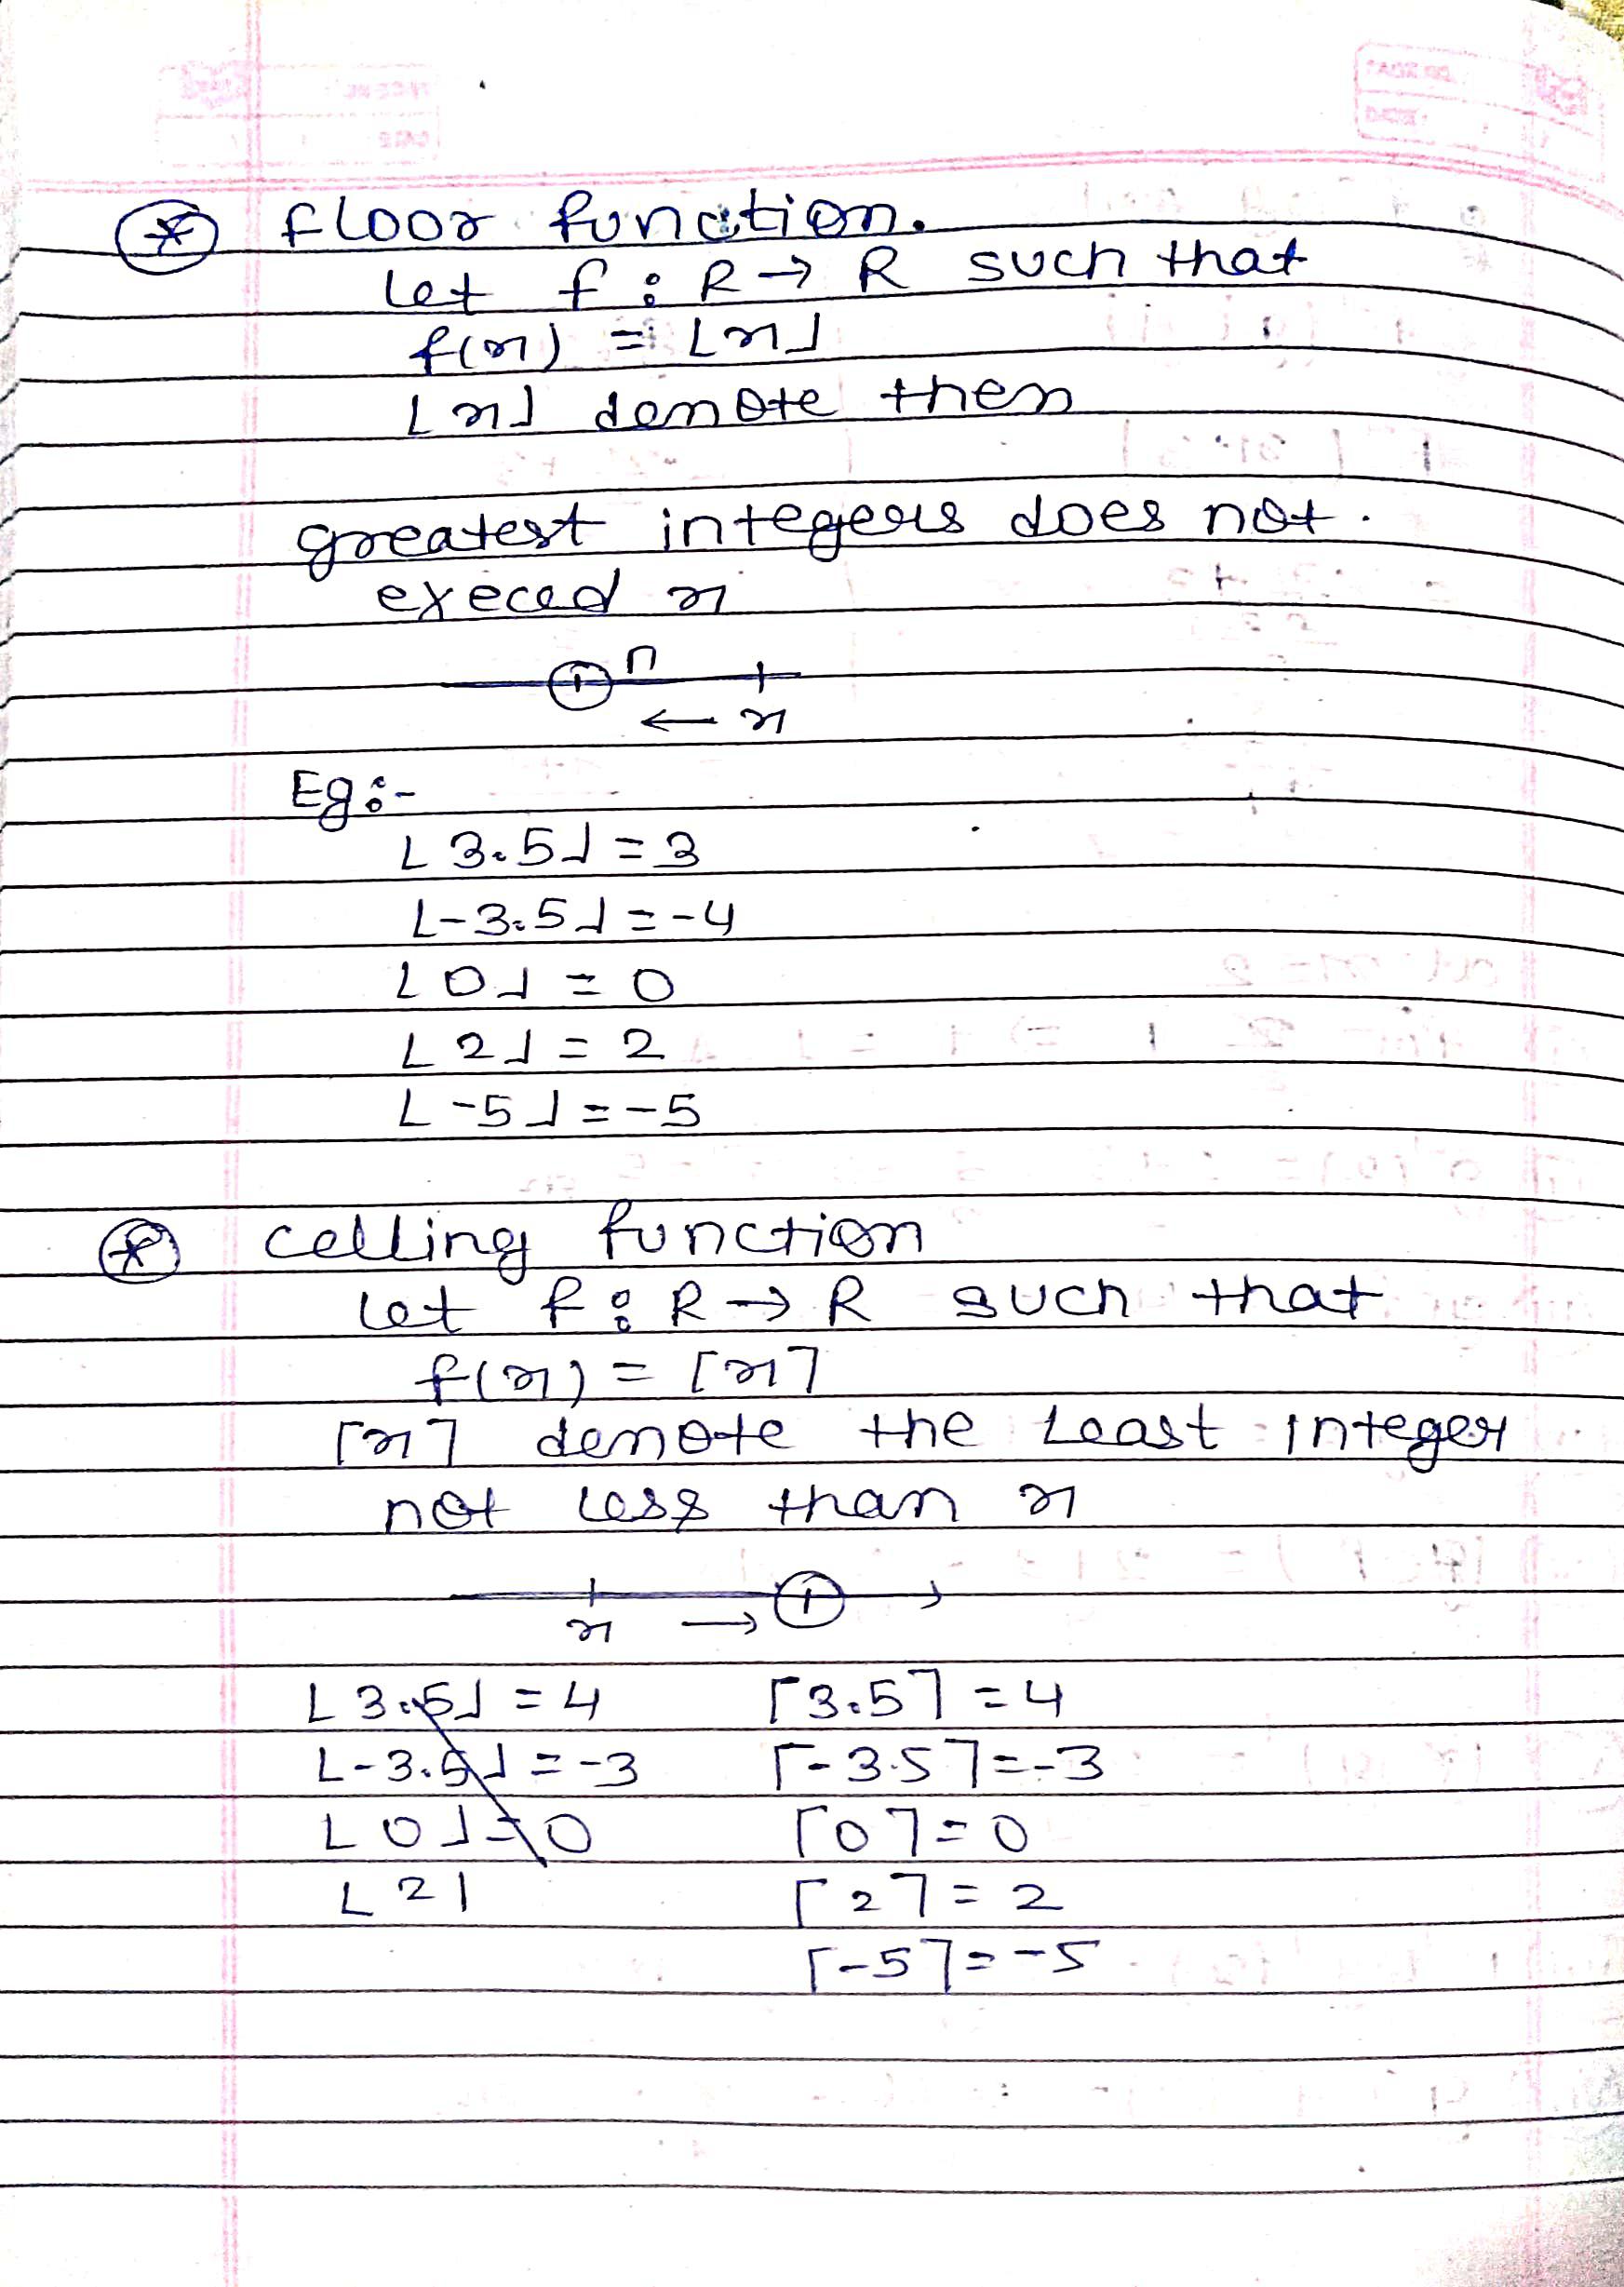 ⊛ floor function.
let f : R → R such that
f(x) = ⌊x⌋
⌊x⌋ denote then
greatest integers does not.
execed x
n
← x
Eg:-
⌊3.5⌋ = 3
⌊-3.5⌋ = -4
⌊0⌋ = 0
⌊2⌋ = 2
⌊-5⌋ = -5
⊛ celling function
let f : R → R such that
f(x) = ⌈x⌉
⌈x⌉ denote the least integer
not less than x
x →
⌊3.5⌋ = 4 ⌈3.5⌉ = 4
⌊-3.5⌋ = -3 ⌈-3.5⌉ = -3
⌊0⌋ = 0 ⌈0⌉ = 0
⌊2| ⌈2⌉ = 2
⌈-5⌉ = -5